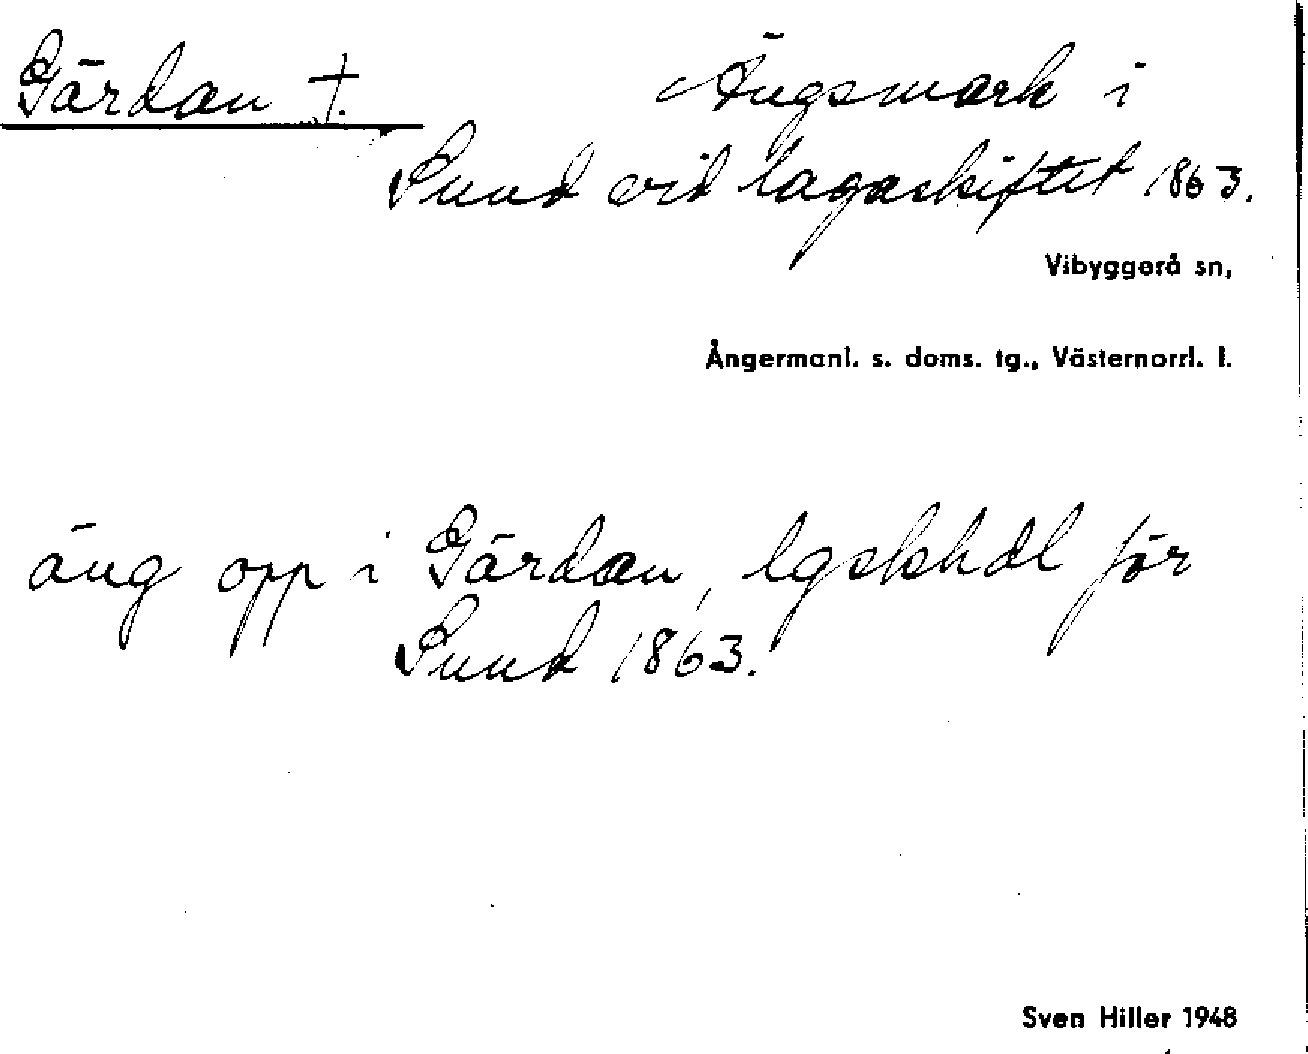 Gärdan †. Ängsmark i
Sund vid lagaskiftet 1863.
Vibyggerå sn,
Ångermanl. s. doms. tg., Västernorrl. l.
äng opp i Gärdan, lgskhdl för
Sund 1863.
Sven Hiller 1948